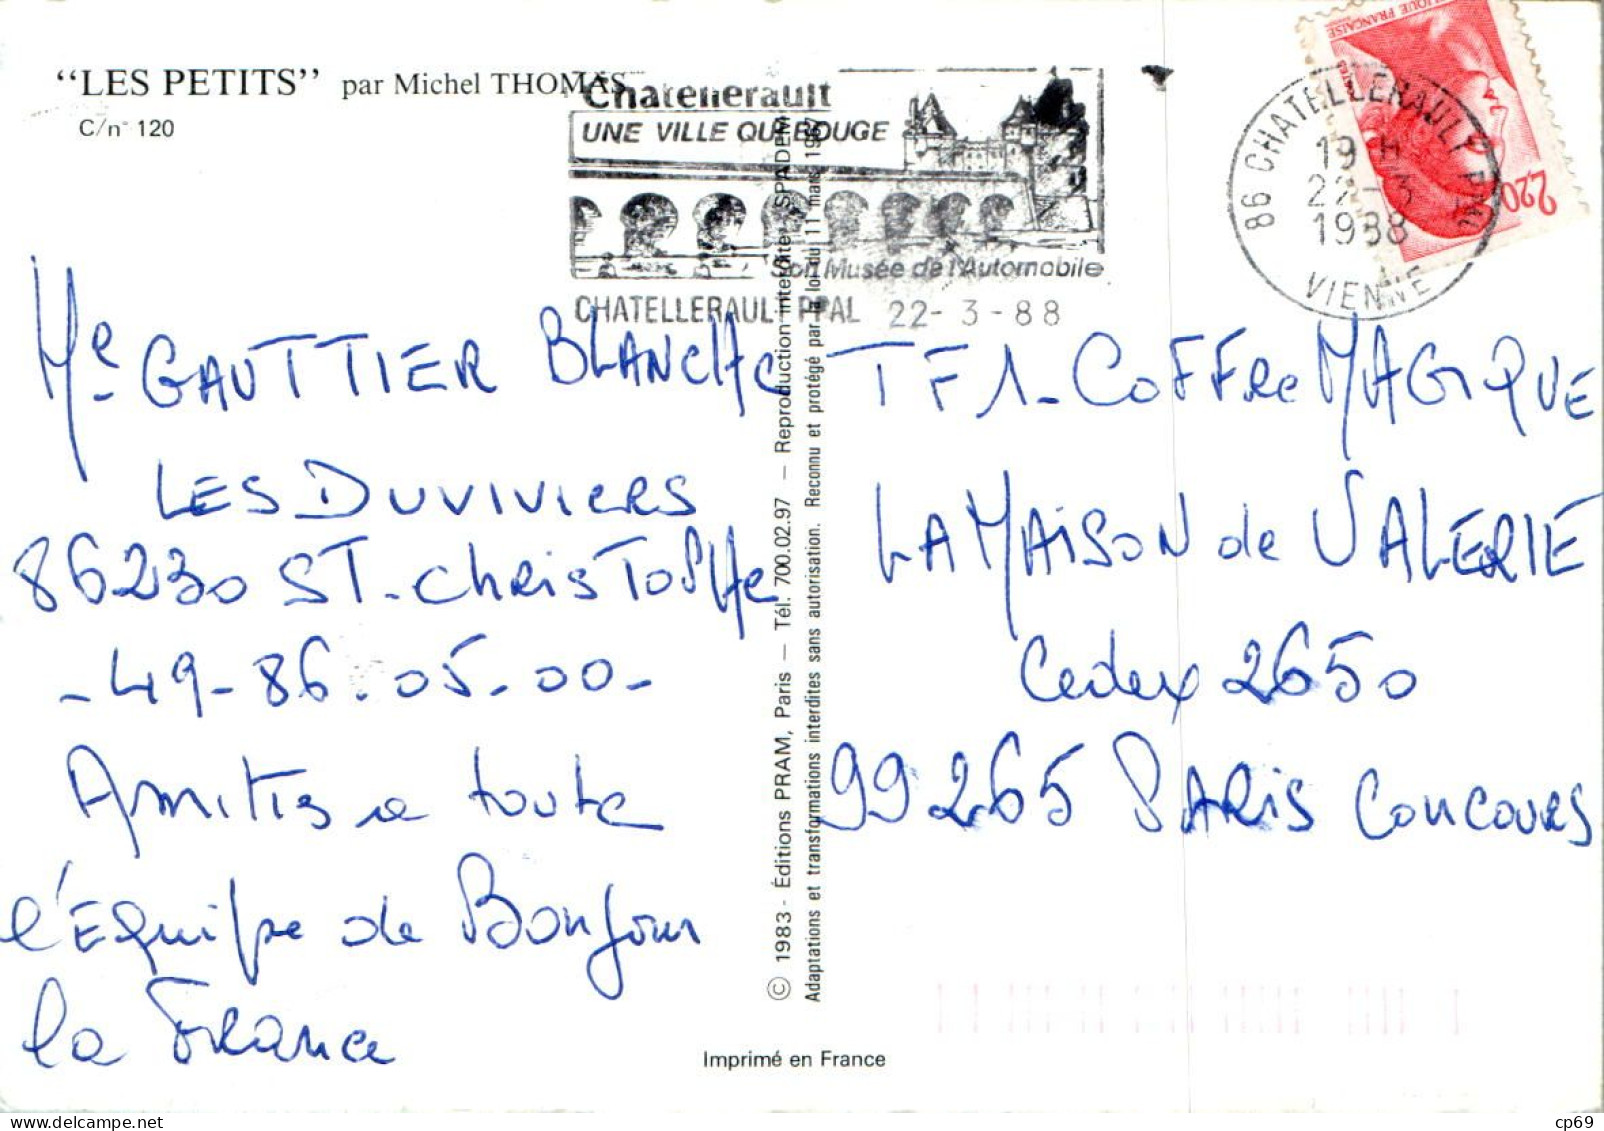 “LES PETITS” par Michel THOMAS
C/n° 120
Chatellerault
UNE VILLE QUI BOUGE
Son Musée de l'Automobile
CHATELLERAULT PPAL 22-3-88
86 CHATELLERAULT PPAL
19 H
22-3
1988
VIENNE
2,20
Me GAUTTIER BLANCHE
LES DUVIVIERS
86230 ST-ChrisToPHe
-49-86.05.00-
Amitis a toute
l'Equipe de Bonjour
la France
TF1-CoFFRe MAGIQUE
LA MAISON de VALERIE
Cedex 2650
99265 PARis Concours
© 1983 - Éditions PRAM, Paris — Tél. 700.02.97 — Reproduction interdite, SPADEM
Adaptations et transformations interdites sans autorisation. Reconnu et protégé par la loi du 11 mars 1957
Imprimé en France
cp69